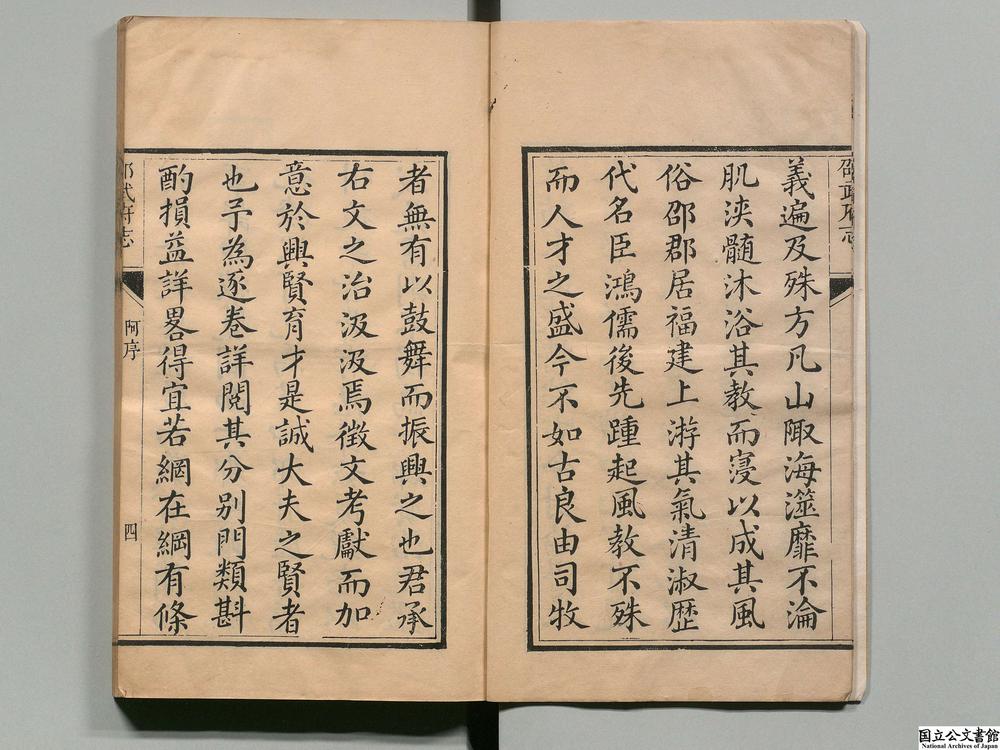 邵武府志
義遍及殊方凡山陬海澨靡不淪
肌浹髓沐浴其教而寖以成其風
俗邵郡居福建上游其氣清淑歷
代名臣鴻儒後先踵起風教不殊
而人才之盛今不如古良由司牧
者無有以鼓舞而振興之也君承
右文之治汲汲焉徵文考獻而加
意於興賢育才是誠大夫之賢者
也予為逐卷詳閱其分別門類斟
酌損益詳畧得宜若網在綱有條
邵武府志
阿序
四
国立公文書館
National Archives of Japan